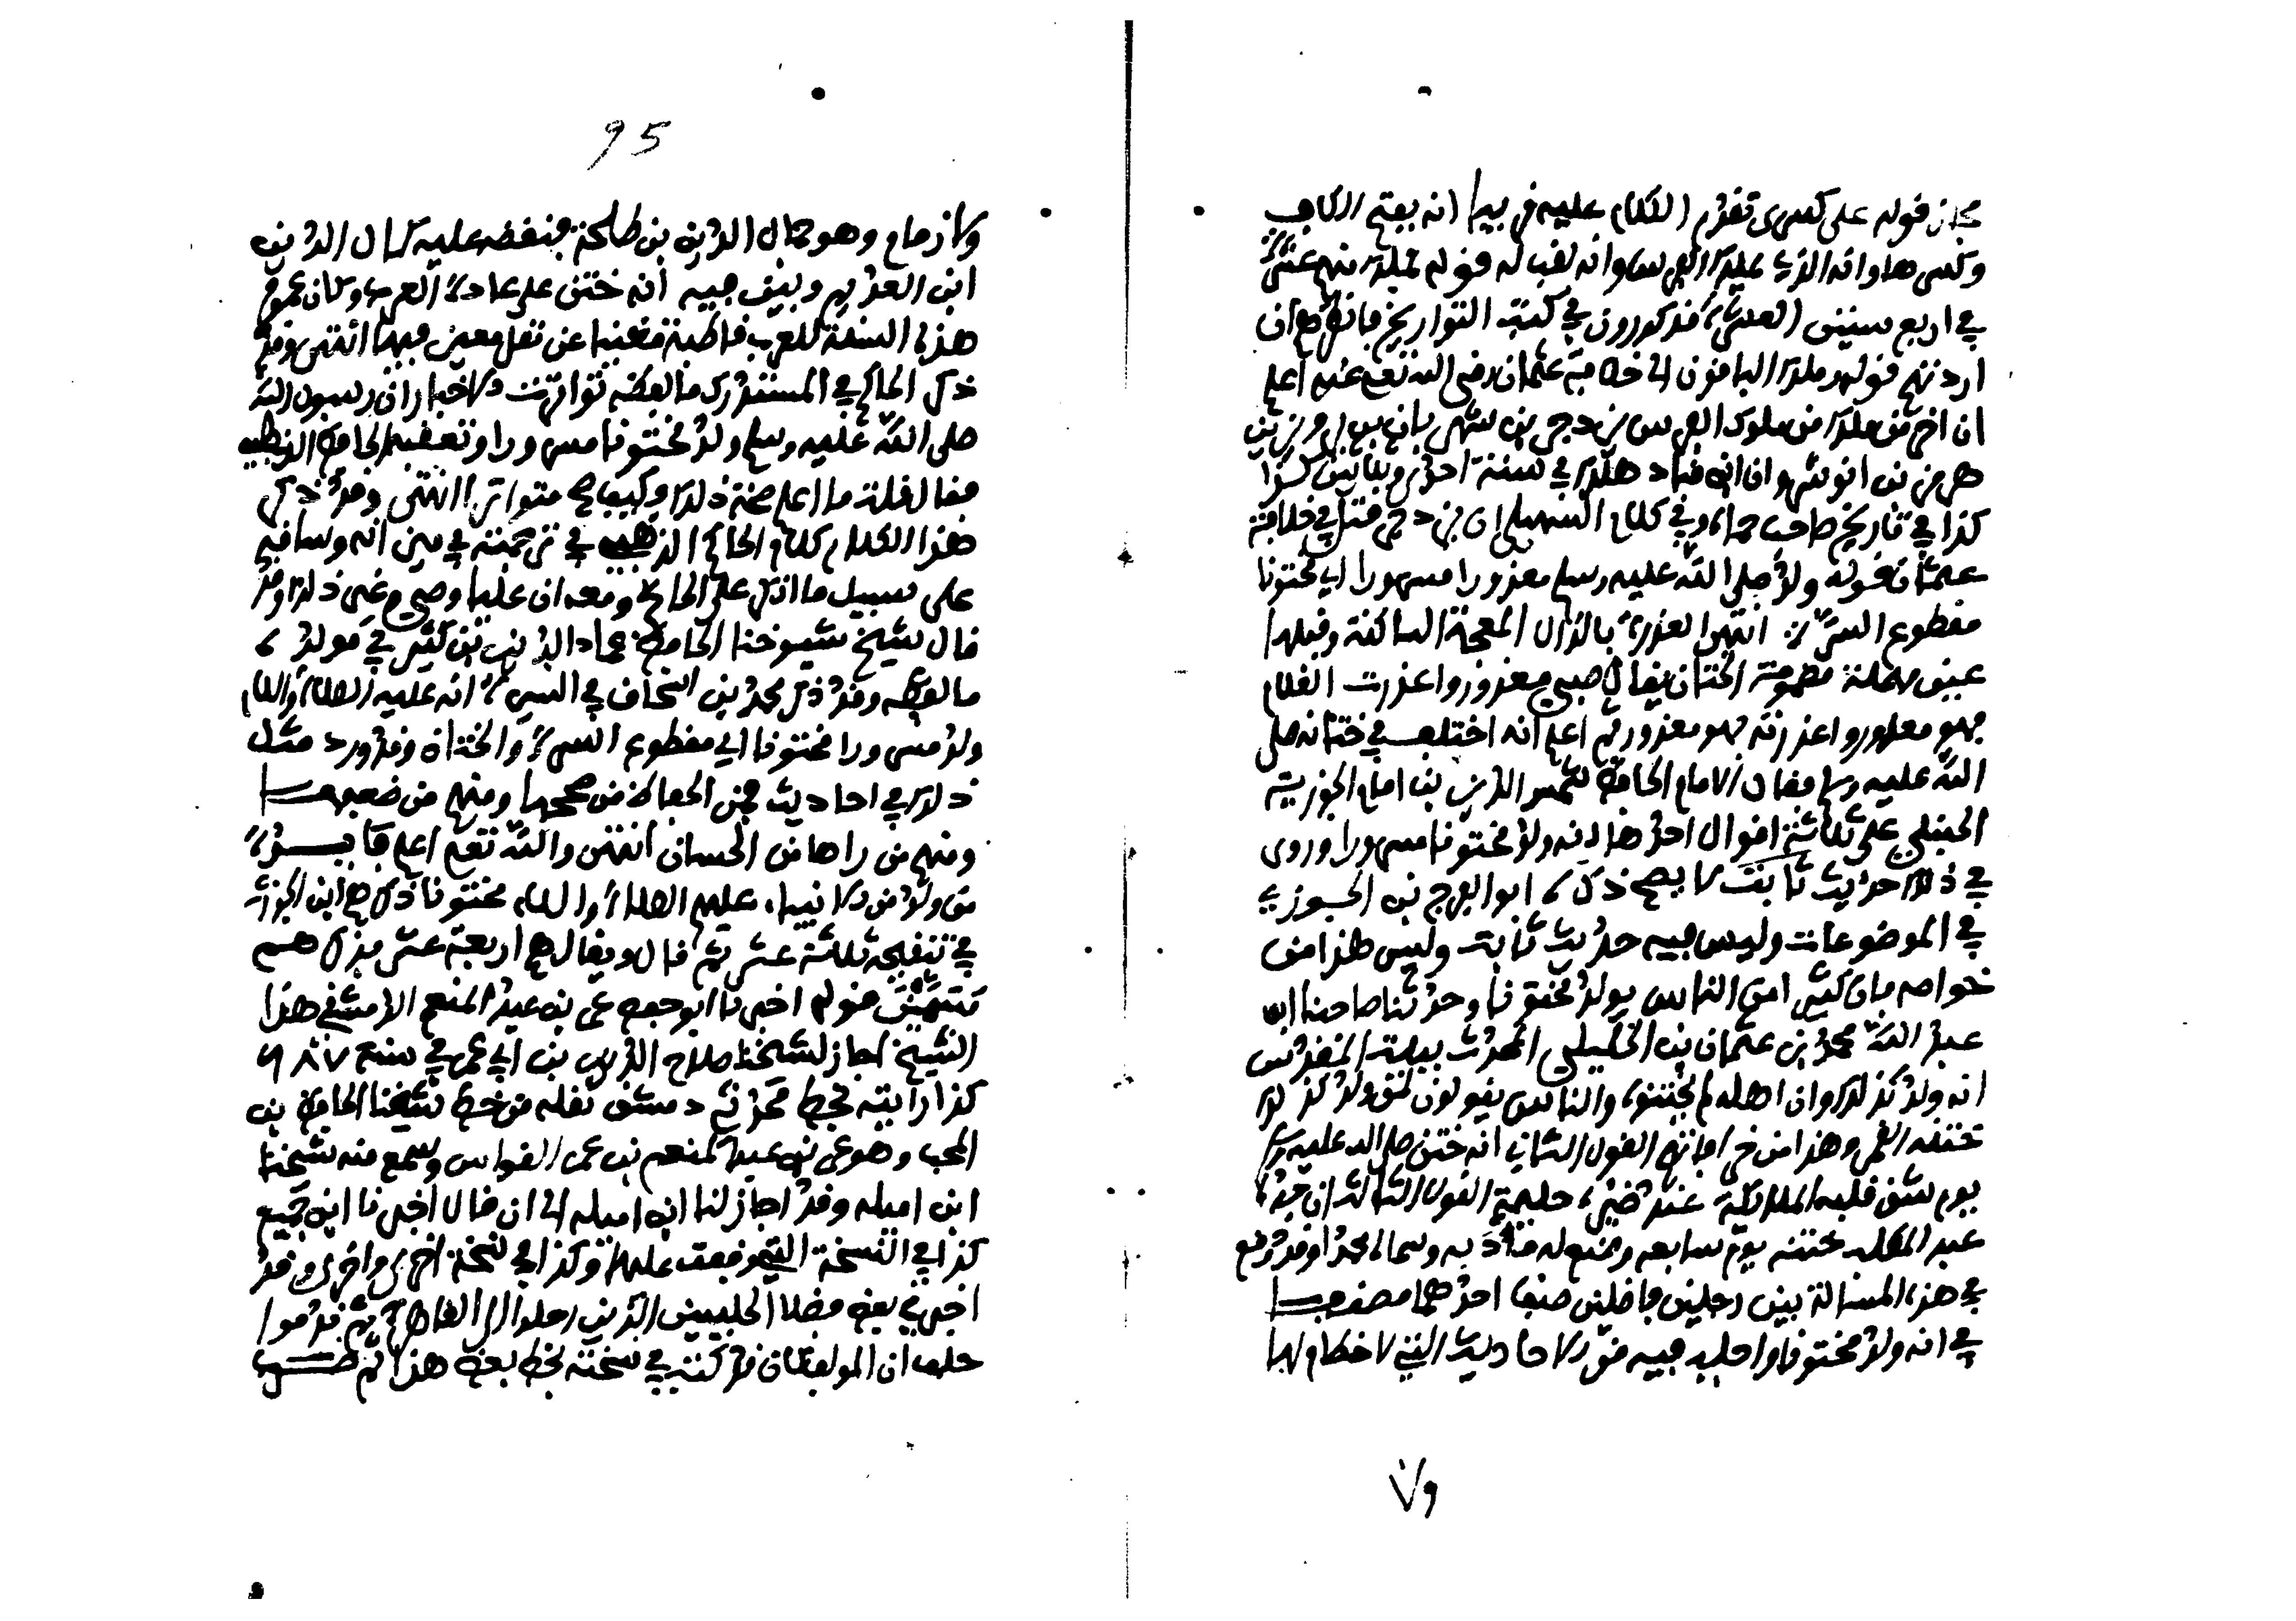 مجاز قوله على كسرى تقدم الكلام عليه قريبا انه بفتح الكاف
وكسرها وانه الذي يملك الفرس وانه لقب له قوله تملك منهم عشرة
في اربع سنين العشرة مذكورون في كتب التواريخ فانظرها ان
اردتهم قوله وملك الباقون الى خلافة عثمان رضي الله تعالى عنه اعلم
ان اخر من ملك من ملوك الفرس يزدجرد بن شهريار بن ابرويز بن
هرمز بن انوشروان ابن قباد هلك في سنة احدى وثلاثين كذا
كذا في تاريخ صاحب حماة وفي كلام السهيلي ان يزدجرد قتل في خلافة
عثمان قوله ولد صلى الله عليه وسلم معذورا مسرورا اي مختونا
مقطوع السرة انتهى العذرة بالذال المعجمة الساكنة وقبلها
عين مهملة مضمومة الختان يقال صبي معذور واعذرت الغلام
فهو معذور واعذرته فهو معذور ثم اعلم انه اختلف في ختانه صلى
الله عليه وسلم فقال الامام الحافظ شمس الدين بن امام الجوزية
الحنبلي على ثلاثة اقوال احدها انه ولد مختونا مسرورا وروى
في ذلك حديث ثابت لا يصح ذكره ابو الفرج بن الجوزي
في الموضوعات وليس فيه حديث ثابت وليس هذا من
خواصه فان كثيرا من الناس يولد مختونا وحدثنا صاحبنا ابو
عبد الله محمد بن عثمان بن الخليلي المحدث ببيت المقدس
انه ولد كذلك وان اهله لم يختنوه والناس يقولون لمن ولد كذلك
ختنه القمر وهذا من خرافاتهم القول الثاني انه ختن صلى الله عليه وسلم
يوم شق قلبه الملائكة عند ظئره حليمة القول الثالث ان جده
عبد المطلب ختنه يوم سابعه وصنع له مأدبة وسماه محمدا وقد وقع
في هذه المسالة بين رجلين فاضلين صنف احدهما مصنفا
في انه ولد مختونا واجلب فيه من الاحاديث التي لا خطام لها
95
ولا زمام وهو كمال الدين بن طلحة فنقضه عليه كمال الدين
ابن العديم وبين فيه انه ختن على عادة العرب وكان عموم
هذه السنة للعرب قاطبة مغنيا عن نقل معين فيها انتهى وقد
ذكر الحاكم في المستدرك ما لفظه تواترت الاخبار ان رسول الله
صلى الله عليه وسلم ولد مختونا مسرورا وتعقبه الحافظ الذهبي
فقال قلت ما اعلم صحة ذلك وكيف متواترا انتهى وقد ذكر
هذا الكلام كلام الحاكم الذهبي في ترجمته في ميزانه وساقه
على سبيل ما انكر على الحاكم ومعه ان عليا وصي وغير ذلك وقد
قال شيخ شيوخنا الحافظ عماد الدين بن كثير في مولده
ما لفظه وقد ذكر محمد بن اسحاق في السيرة انه عليه الصلاة والسلام
ولد مسرورا مختونا اي مقطوع السرة والختان وقد ورد مثل
ذلك في احاديث فمن الحفاظ من صححها ومنهم من ضعفها
ومنهم من راها من الحسان انتهى والله تعالى اعلم فايدة
من ولد من الانبياء عليهم الصلاة والسلام مختونا ذكرهم ابن الجوزي
في تنقيحه ثلاثة عشر ثم قال ويقال هم اربعة عشر فذكرهم
تتمة قوله اخبرنا ابو حفص عمر بن عبد المنعم الدمشقي هذا
الشيخ اجاز لشيخنا صلاح الدين بن ابي عمر في سنة ٦٨٧
كذا رايته بخط محدث دمشق نقله من خط شيخنا الحافظ بن
المحب وهو عمر بن عبد المنعم بن عمر القواس وسمع منه شيخنا
ابن اميله وقد اجاز لنا ابن اميله الى ان قال اخبرنا ابن جميع
كذا في النسخة التي وقفت عليها وكذا في نسخة اخرى واخرى وقد
اخبرني بعض فضلا الحلبيين الذين رحلوا الى القاهرة ثم قدموا
حلب ان المولف كان قد كتب في نسخته بخط بعض هذا ثم ضرب
و٧